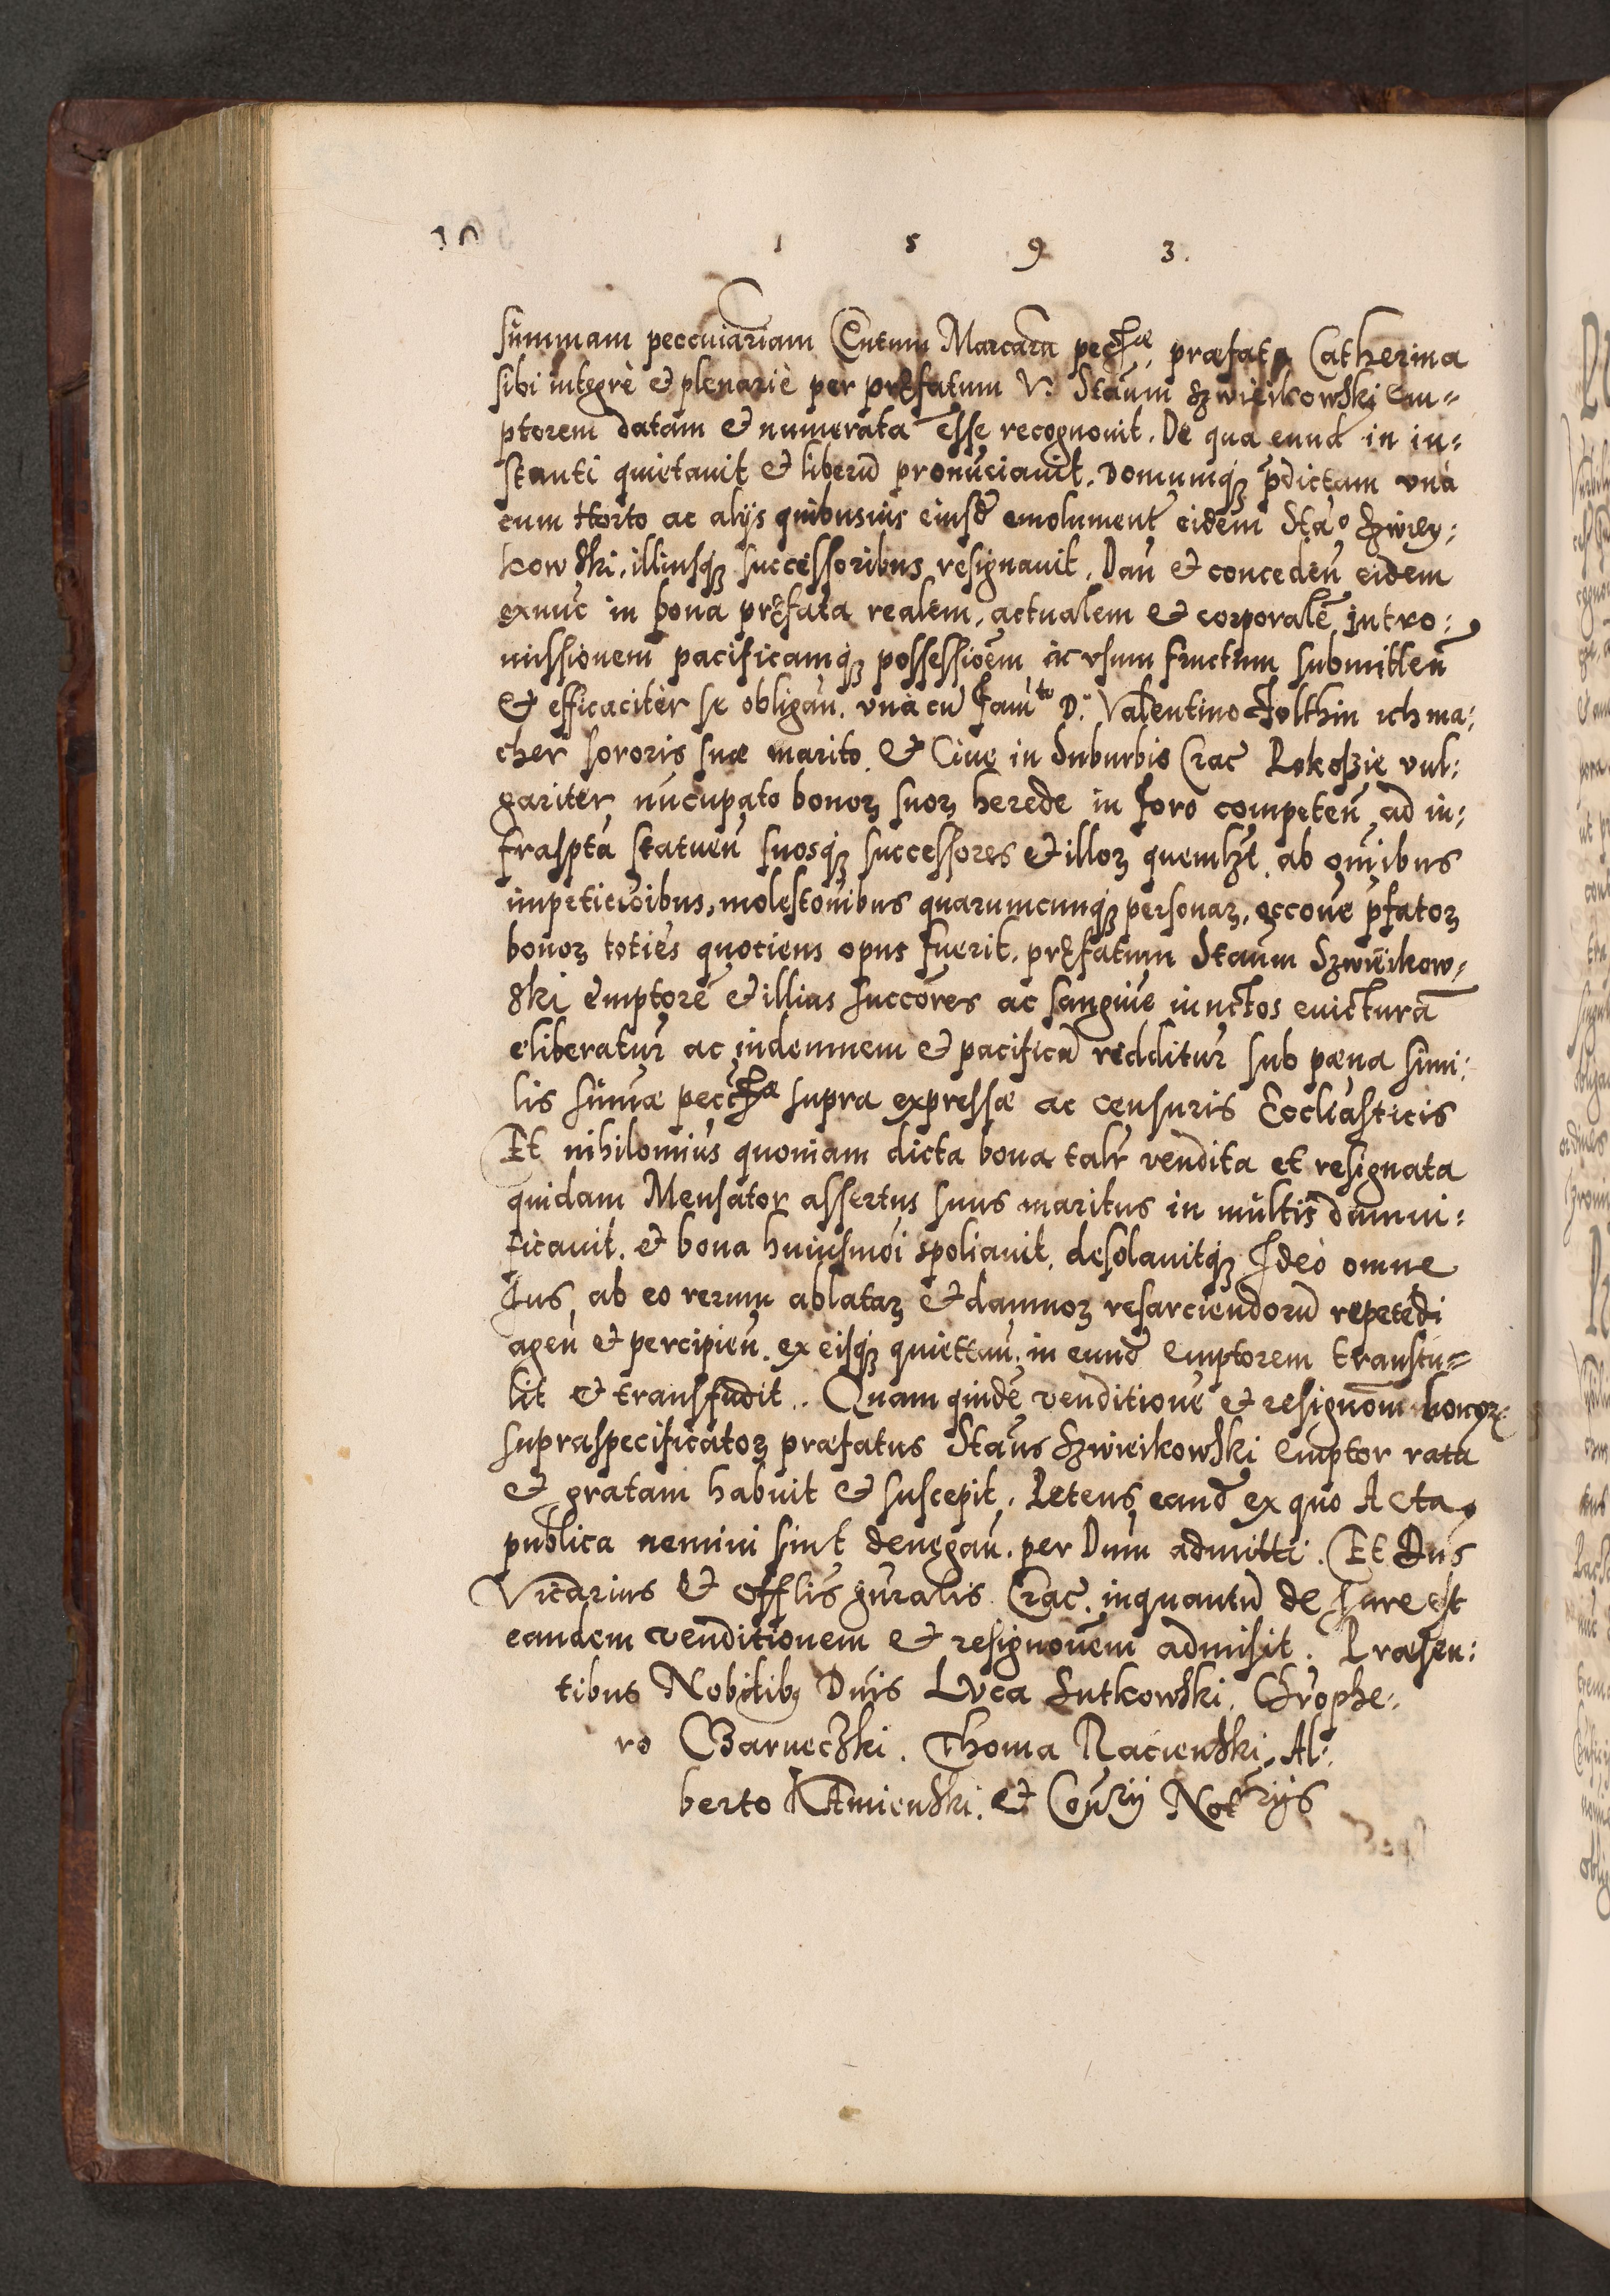 1 5 9 3.
summam peccuiariam Centum Marcarū pecchæ præfata Catherina
sibi integrè et plenariè per pręfatum V. Staūm Szwieikowski Em=
ptorem datam et numeratā esse recognouit. De qua eund̄ in in=
stanti quietauit et liberū pronūciauit. Domumq̨ p̄dictam unà
cum Horto ac alijs quibusuis eiusd̄ emolument eidem Stao Szwiey=
kowski, illiusq̨ successoribus resignauit. Dan̄ et conceden̄ eidem
exnūc in bona pręfata realem, actualem et corporalē intro=
missionem pacificamq̨ possessioēm ac vsum fructum submitten̄
et efficaciter se obligan̄. unà cū Famto D. Valentino
cher sororis suæ marito. et Ciue in Suburbio Crac vul=
gariter nūcupato bonoꝝ suoꝝ herede in foro competen̄ ad in=
frasp̄ta statuen̄ suosq̨ successores et illoꝝ quemlꝫt. ab om̄ibus
impeticiōibus, molestōnibus quarumcunq̨ personaꝝ, occōne p̄fatoꝝ
bonoꝝ totiēs quotiens opus fuerit. pręfatum Staūm Szwieikow=
ski emptorē et illius succōres ac sangiūe iunctos euicturā
eliberatur̄ ac indemnem et pacificū redditur̄ sub pæna simi=
lis sum̄æ pecchæ supra expressæ ac censuris Eccliasticis
Et nihilomiūs quoniam dicta bona talr̄ vendita et resignata
quidam Mensator assertus suus maritus in multis damni=
ficauit. et bona huiusmōi spoliauit. desolauitq̨ Ideò omne
Ius ab eo rerum ablataꝝ et damnoꝝ resarciendorū repetēdi
agen̄ et percipien̄. ex eisq̨ quiettan̄. in eund̄ Emptorem transtu=
lit et transfudit.. Quam quidē venditionē et resignōm bonoꝝ
supraspecificatoꝝ præfatus Staūs Szwieikowski emptor ratā
et gratam habuit et suscepit. Petens eand̄ ex quo Acta
publica nemini sint denegan̄. per Dnm̄ admitti. Et Dn̄s
Vicarius et Offlis gn̄ralis Crac. inquantū de Iure est
eandem venditionem et resignōnem admisit. Præsen=
tibus Nobilibꝫ Dn̄is Luca Sutkowski. Chrophe=
ro Czarneczki. Thoma Racienski. Al=
berto Kamienski. et Con̄rij Notrijs